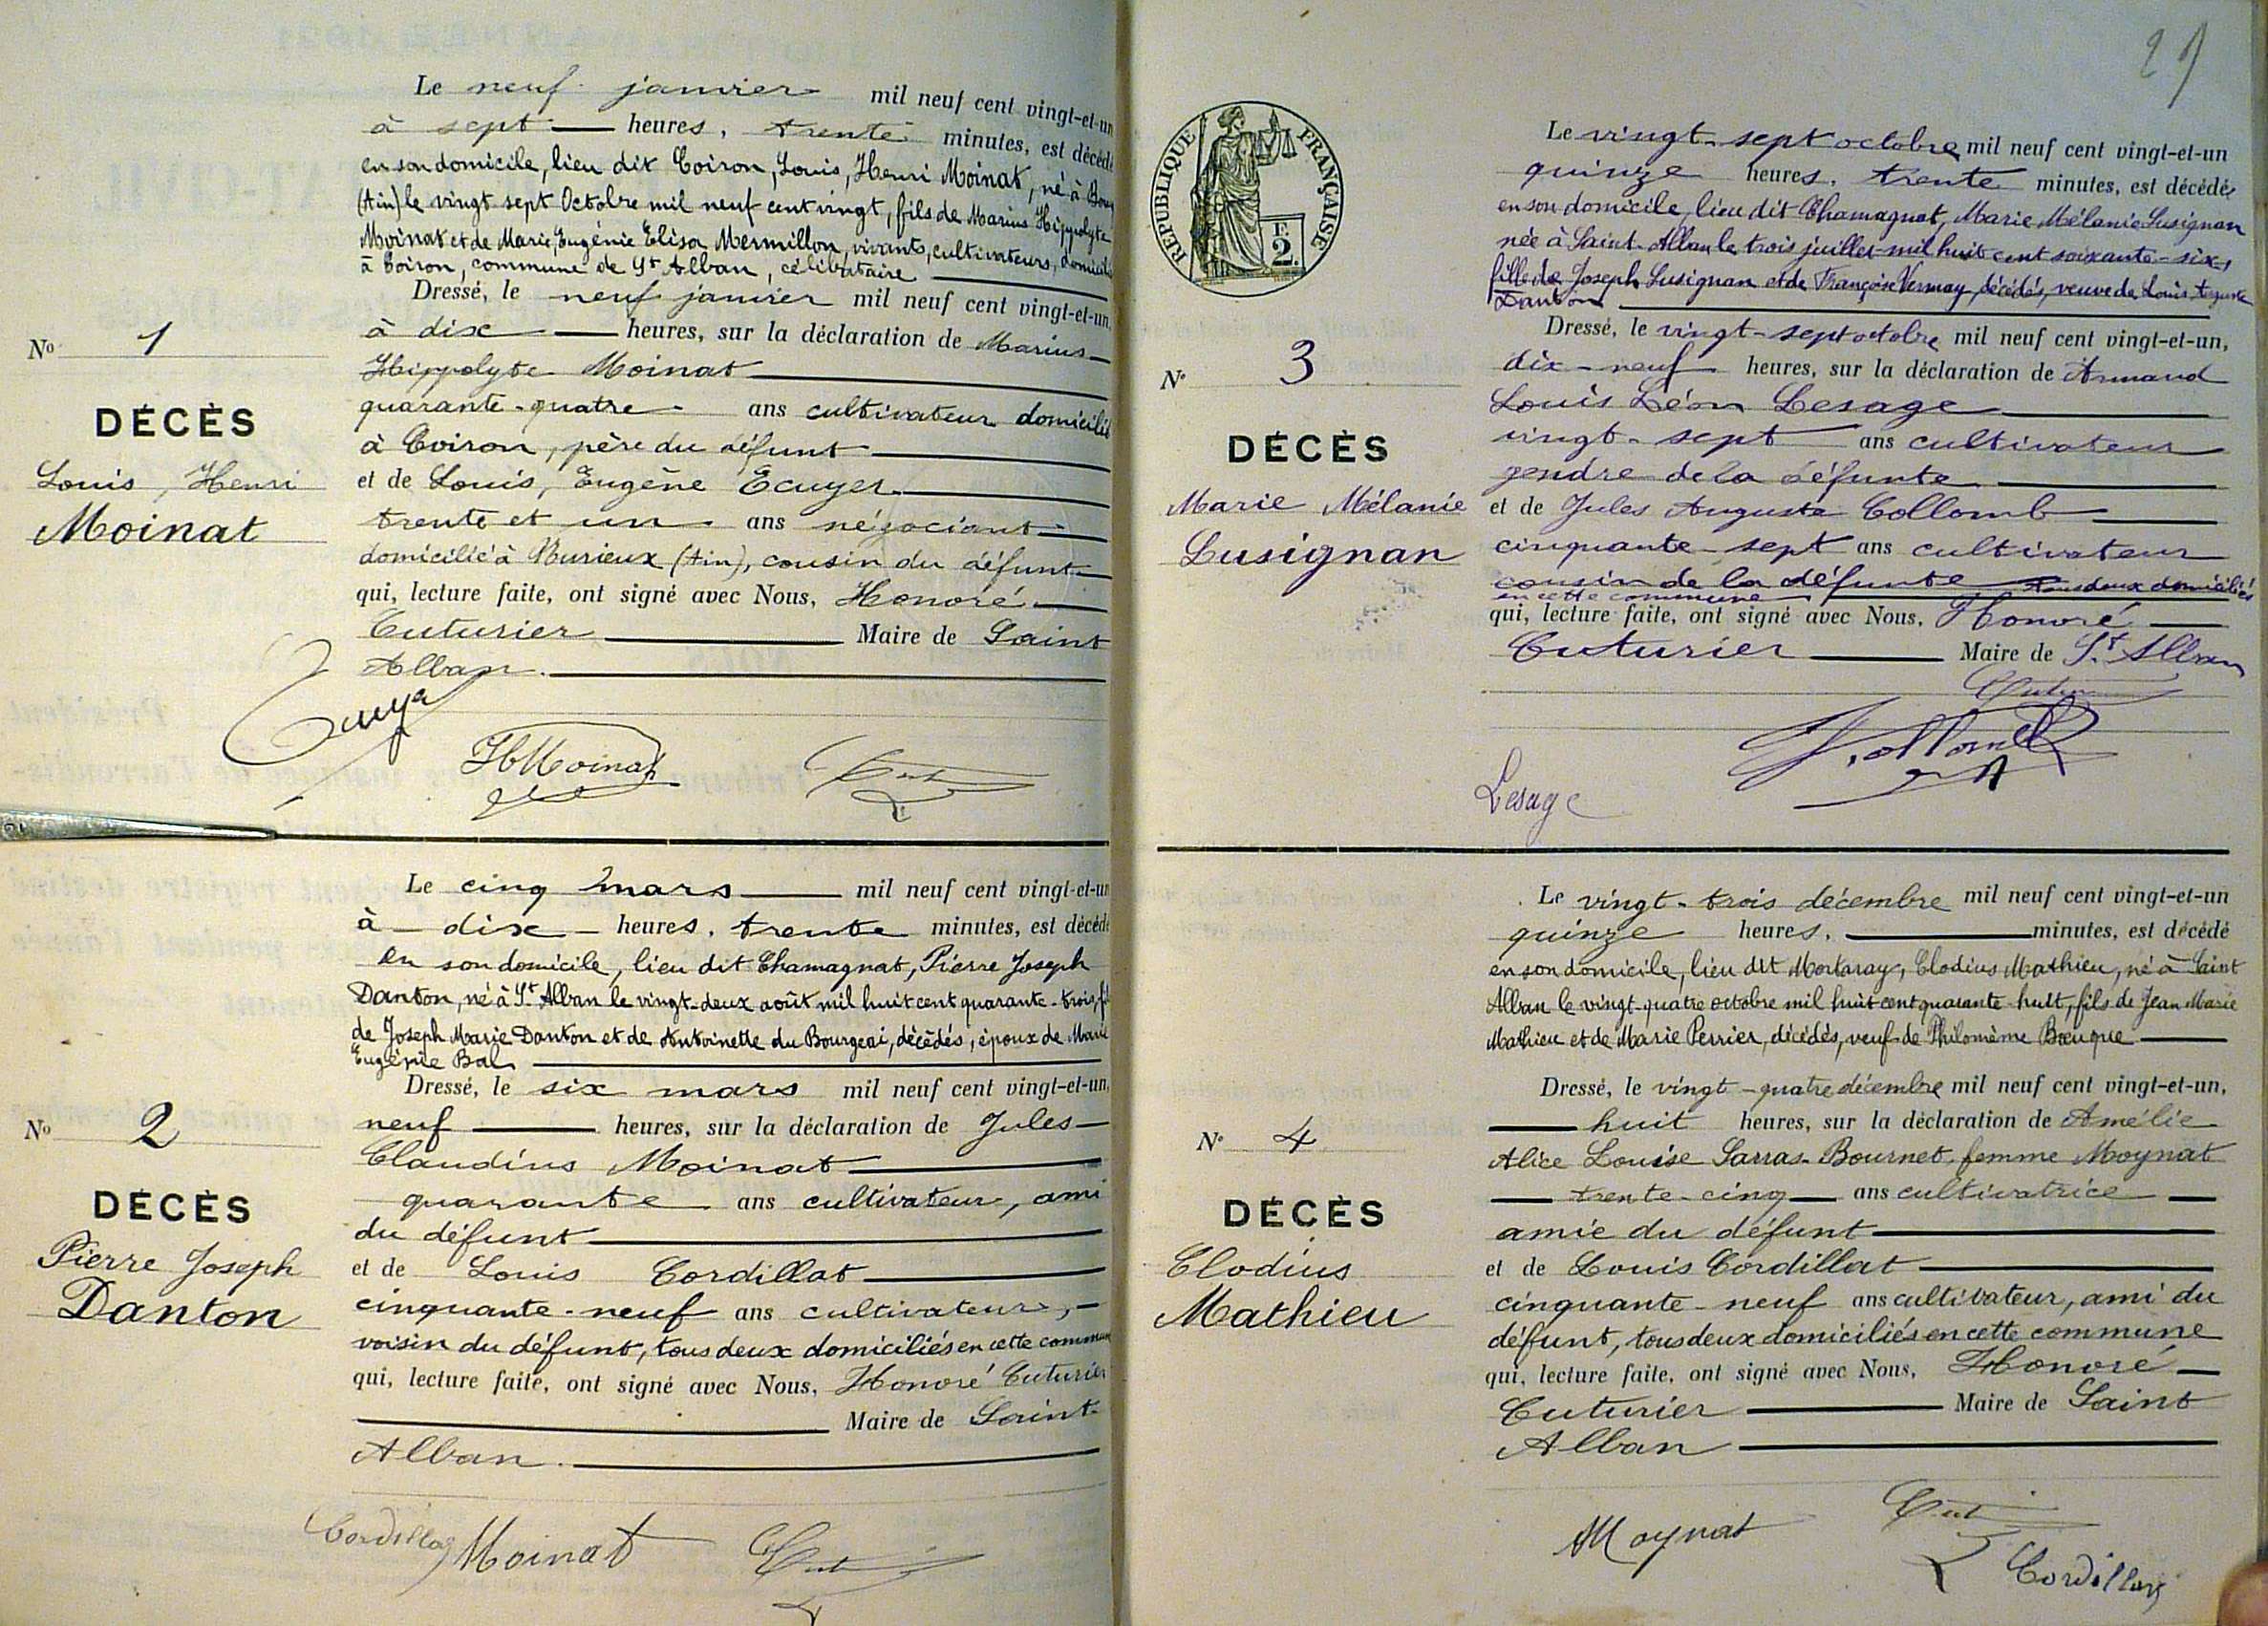 Le neuf janvier mil neuf cent vingt-et-un
à sept heures, trente minutes, est décédé
en son domicile, lieu dit Coiron, Louis, Henri Moinat, né à
(Ain) le vingt sept Octobre mil neuf cent vingt, fils de Marius Hippolyte
Moinat et de Marie, Eugénie Elisa Mermillon, vivants, cultivateurs,
à Coiron, commune de St Alban, célibataire
Dressé, le neuf janvier mil neuf cent vingt-et-un,
à dix heures, sur la déclaration de Marius
Hippolyte Moinat
quarante-quatre ans cultivateur domicilié
à Coiron, père du défunt
et de Louis, Eugène Ecuyer
trente et un ans négociant
domicilié à (Ain), cousin du défunt
qui, lecture faite, ont signé avec Nous, Honoré
Cuturier Maire de Saint
Alban.
No 1
DÉCÈS
Louis, Henri
Moinat
HMoinat
Le cinq mars mil neuf cent vingt-et-un
à dix heures, trente minutes, est décédé
en son domicile, lieu dit Chamagnat, Pierre Joseph
Danton, né à St Alban le vingt-deux août mil huit cent quarante-trois,
de Joseph Marie Danton et de Antoinette du Bourgeai, décédés, époux de Marie
Eugénie Bal
Dressé, le six mars mil neuf cent vingt-et-un,
neuf heures, sur la déclaration de Jules
Claudius Moinat
quarante ans cultivateur, ami
du défunt
et de Louis Cordillat
cinquante-neuf ans cultivateur,
voisin du défunt, tous deux domiciliés en cette commune
qui, lecture faite, ont signé avec Nous, Honoré Cuturier
Maire de Saint-
Alban.
No 2
DÉCÈS
Pierre Joseph
Danton
Cordillat Moinat
29
RÉPUBLIQUE FRANÇAISE
2F.
Le vingt-sept octobre mil neuf cent vingt-et-un
quinze heures, trente minutes, est décédée
en son domicile, lieu dit Chamagnat, Marie Mélanie Lusignan
née à Saint-Alban le trois juillet mil huit cent soixante-six,
fille de Joseph Lusignan et de Françoise Vernay, décédés, veuve de Louis Auguste
Danton
Dressé, le vingt-sept octobre mil neuf cent vingt-et-un,
dix-neuf heures, sur la déclaration de Armand
Louis Léon Lesage
vingt-sept ans cultivateur
gendre de la défunte
et de Jules Auguste Collomb
cinquante-sept ans cultivateur
cousin de la défunte tous deux domiciliés
en cette commune
qui, lecture faite, ont signé avec Nous, Honoré
Cuturier Maire de St Alban
No 3
DÉCÈS
Marie Mélanie
Lusignan
Lesage
Le vingt-trois décembre mil neuf cent vingt-et-un
quinze heures, minutes, est décédé
en son domicile, lieu dit Mortaray, Clodius Mathieu, né à Saint
Alban le vingt-quatre octobre mil huit cent quarante-huit, fils de Jean Marie
Mathieu et de Marie Perrier, décédés, veuf de Philomème
Dressé, le vingt-quatre décembre mil neuf cent vingt-et-un,
huit heures, sur la déclaration de Amélie
Alice Louise Sarras-Bournet femme Moynat
trente-cinq ans cultivatrice
amie du défunt
et de Louis Cordillat
cinquante-neuf ans cultivateur, ami du
défunt, tous deux domiciliés en cette commune
qui, lecture faite, ont signé avec Nous, Honoré
Cuturier Maire de Saint
Alban
No 4
DÉCÈS
Clodius
Mathieu
Moynat
Cordillat